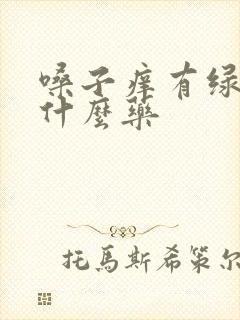 嗓子痒有绿
什麼藥
托馬斯希策尔